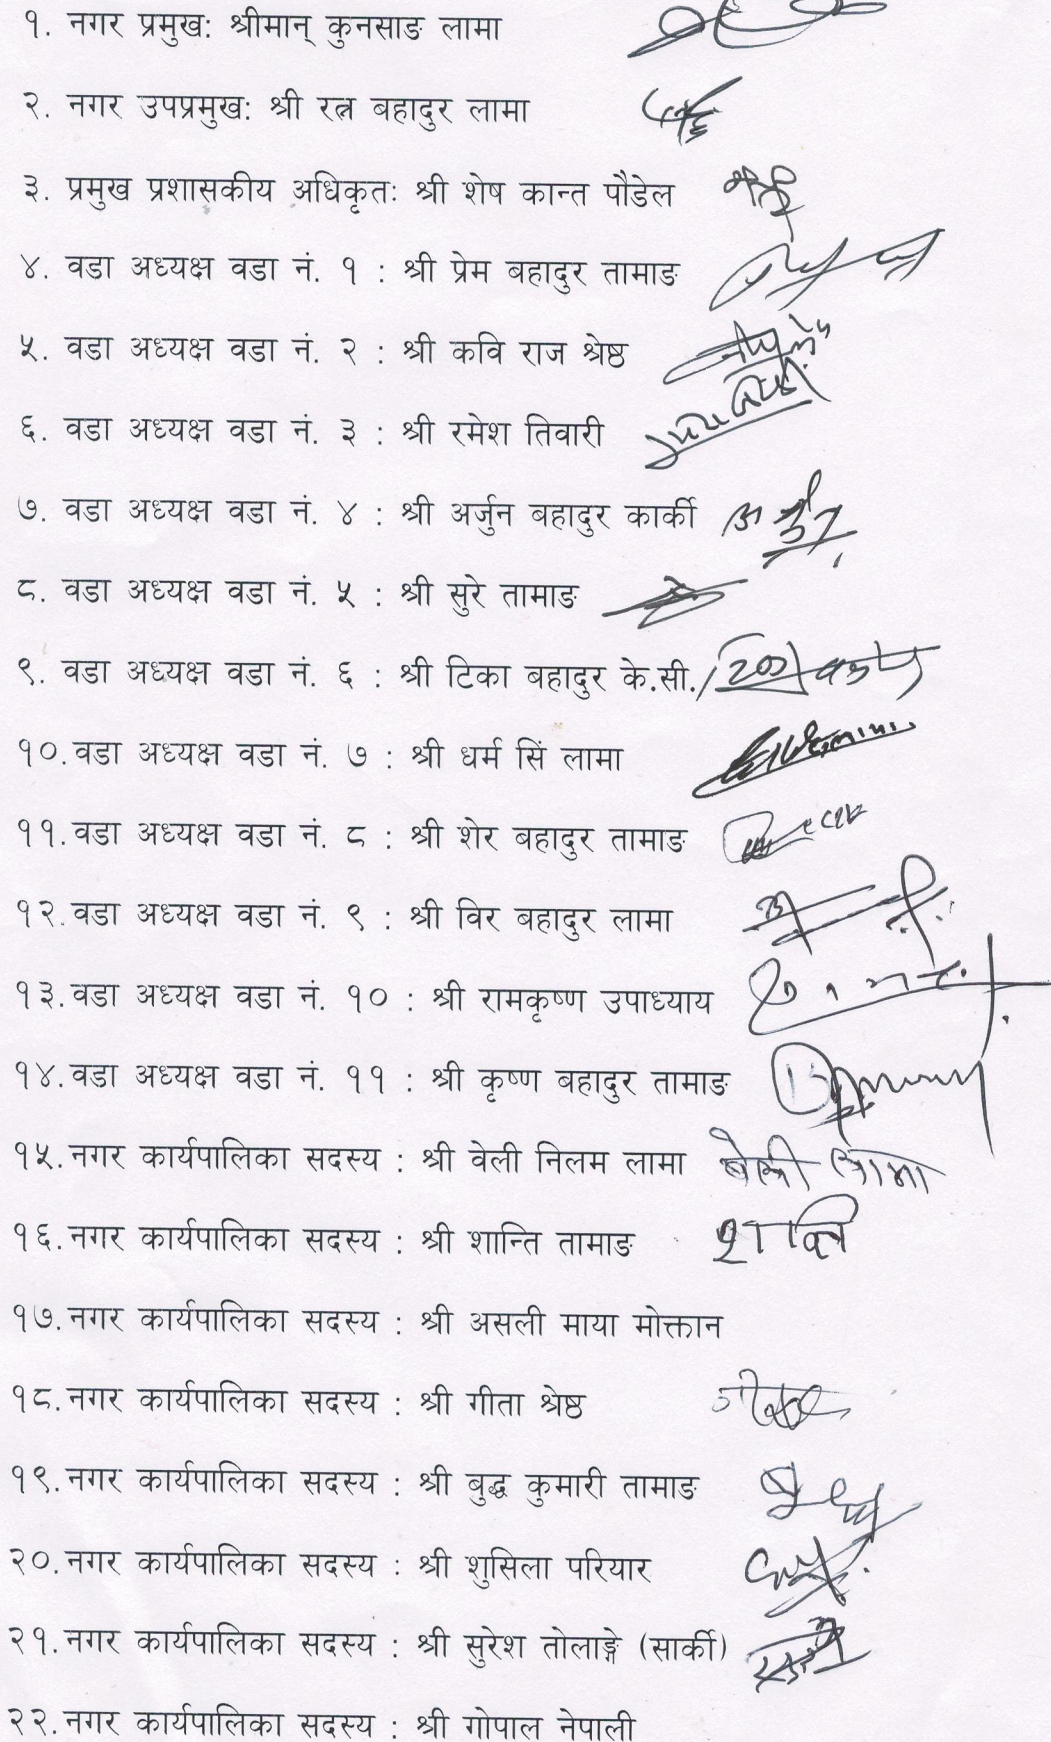 १. नगर प्रमुख: श्रीमान् कुनसाङ लामा
२. नगर उपप्रमुख: श्री रत्न बहादुर लामा
३. प्रमुख प्रशासकीय अधिकृत: श्री शेष कान्त पौडेल
४. वडा अध्यक्ष वडा नं. १ : श्री प्रेम बहादुर तामाङ
५. वडा अध्यक्ष वडा नं. २ : श्री कवि राज श्रेष्ठ
६. वडा अध्यक्ष वडा नं. ३ : श्री रमेश तिवारी
७. वडा अध्यक्ष वडा नं. ४ : श्री अर्जुन बहादुर कार्की
८. वडा अध्यक्ष वडा नं. ५ : श्री सुरे तामाङ
९. वडा अध्यक्ष वडा नं. ६ : श्री टिका बहादुर के.सी.
१०. वडा अध्यक्ष वडा नं. ७ : श्री धर्म सिं लामा
११. वडा अध्यक्ष वडा नं. ८ : श्री शेर बहादुर तामाङ
१२. वडा अध्यक्ष वडा नं. ९ : श्री विर बहादुर लामा
१३. वडा अध्यक्ष वडा नं. १० : श्री रामकृष्ण उपाध्याय
१४. वडा अध्यक्ष वडा नं. ११ : श्री कृष्ण बहादुर तामाङ
१५. नगर कार्यपालिका सदस्य : श्री वेली निलम लामा बेली लामा
१६. नगर कार्यपालिका सदस्य : श्री शान्ति तामाङ शान्ति
१७. नगर कार्यपालिका सदस्य : श्री असली माया मोक्तान
१८. नगर कार्यपालिका सदस्य : श्री गीता श्रेष्ठ
१९. नगर कार्यपालिका सदस्य : श्री बुद्ध कुमारी तामाङ
२०. नगर कार्यपालिका सदस्य : श्री शुसिला परियार
२१. नगर कार्यपालिका सदस्य : श्री सुरेश तोलाङ्गे (सार्की)
२२. नगर कार्यपालिका सदस्य : श्री गोपाल नेपाली